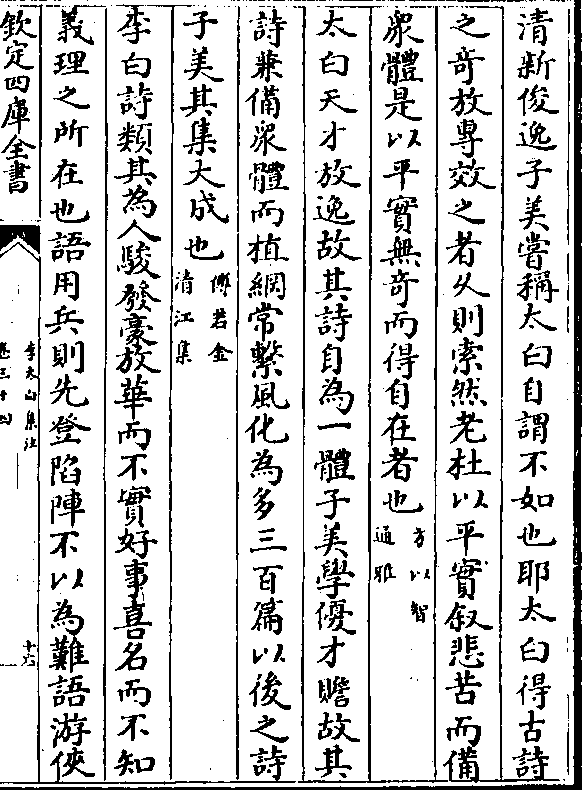 清新俊逸子美嘗稱太白自謂不如也耶太白得古詩
之奇放專效之者久則索然老杜以平實叙悲苦而備
衆體是以平實無奇而得自在者也方以智通雅
太白天才放逸故其詩自為一體子美學優才贍故其
詩兼備衆體而植綱常繫風化為多三百篇以後之詩
子美其集大成也傅若金清江集
李白詩類其為人駿發豪放華而不實好事喜名而不知
義理之所在也語用兵則先登陷陣不以為難語游俠
欽定四庫全書
李太白集注
卷三十四
十六